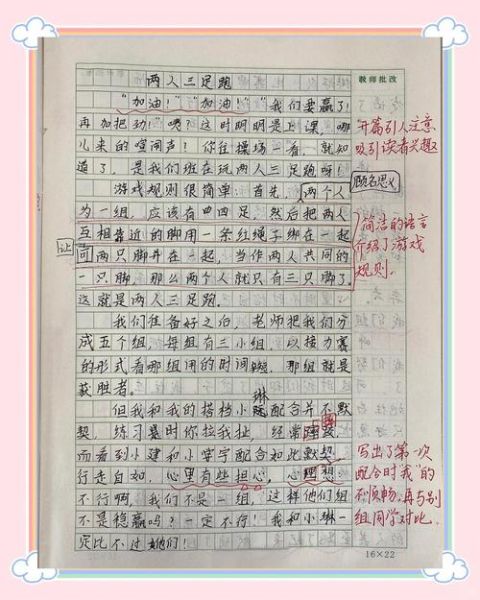 教师批改
两人三足跑
“加油！”“加油！”“我们要赢了！
再加把劲！”咦？这时明明是上课，哪
儿来的喧闹声？你往操场一看，就知
道了，是我们班在玩两人三足跑呀！
游戏规则很简单：首先，两个人
为一组，应该有四四足，然后把两人
互相靠近的脚用一条红绳子绑在一起
让
两只脚并在一起，当作两人共同的
一只脚，那么两个人就只有三只脚了。
这就是两人三足跑。
我们准备好之后，老师把我们分
成五个组，每组有三小组，以接力赛
的形式看那组用的时间短，那组就是
获胜者。
但我和我的搭档小琳配合并不默
契，练习是时你拉我扯，经常
而看到小建和小宇宇配合如此默契，
行走自如，心里有些担心，心里想
不行啊，我们不是一组，这样他们组
不是稳赢吗？一定不行！我和小琳一
定比不过她们！
开篇引人注意
吸引读者兴趣
顾名思义
简洁的语言
介绍了游戏
规则。
写出了第一次
配合时“我”的
不顺畅，再与别
组同学对比。
16×22